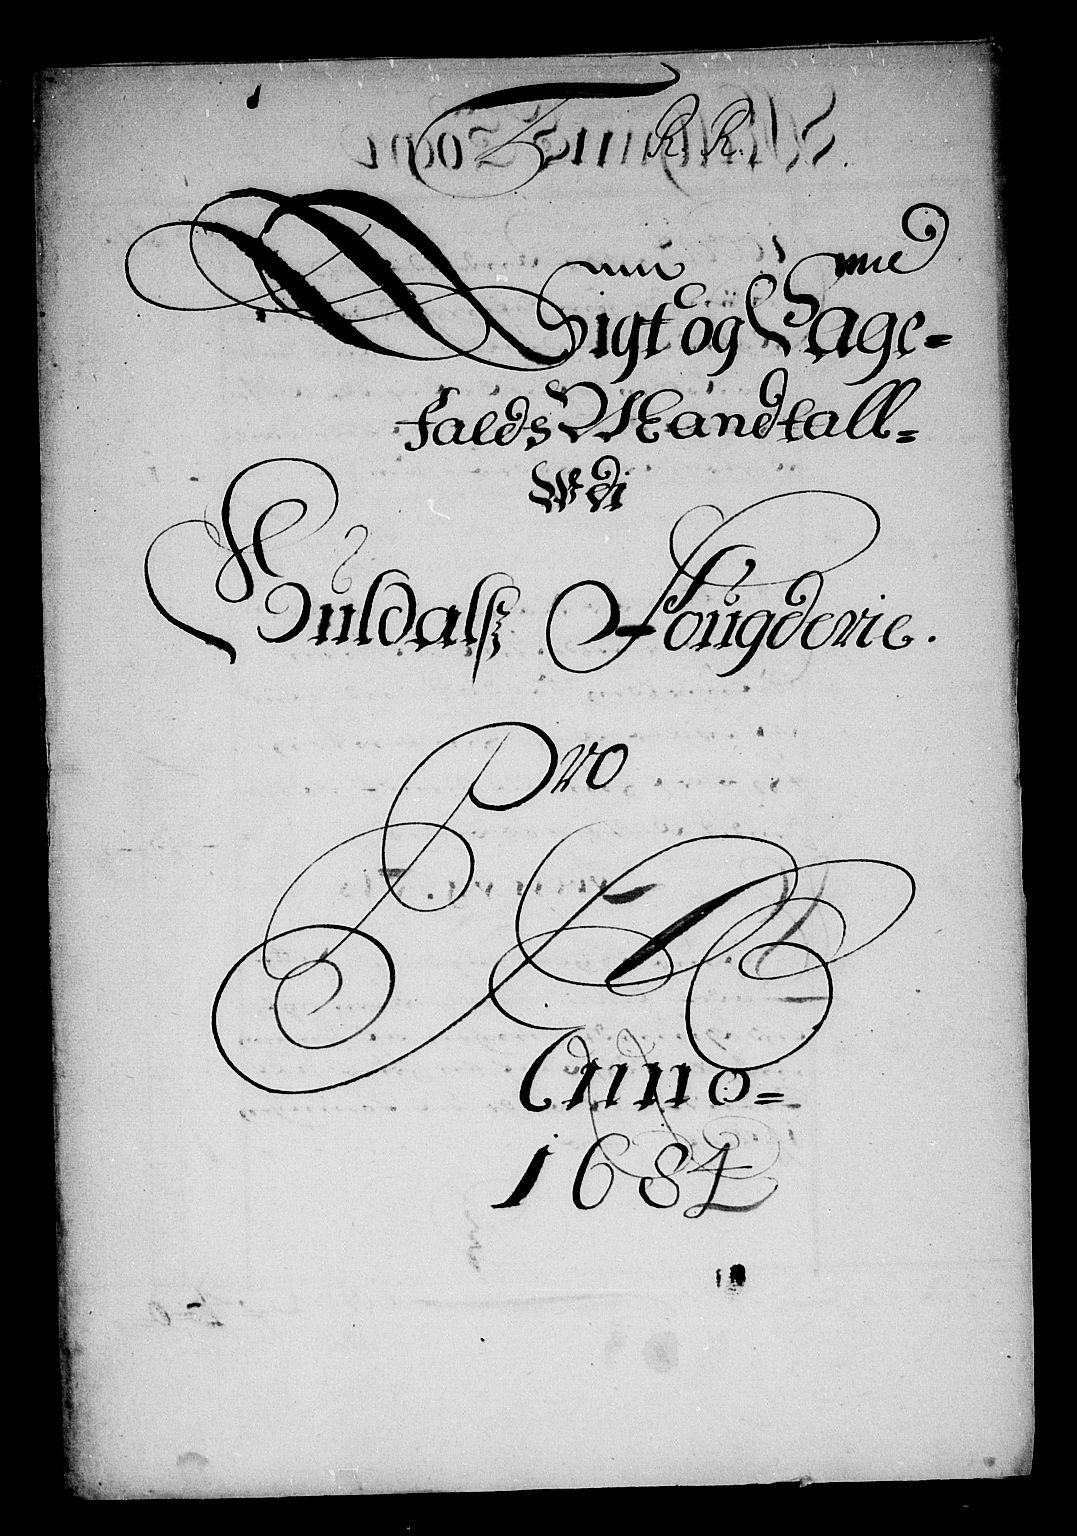 R. R.
Wigt og Sage-
falds Mandtall-
Wdi
Guldals Fougderie.
Pro
Anno-
1684